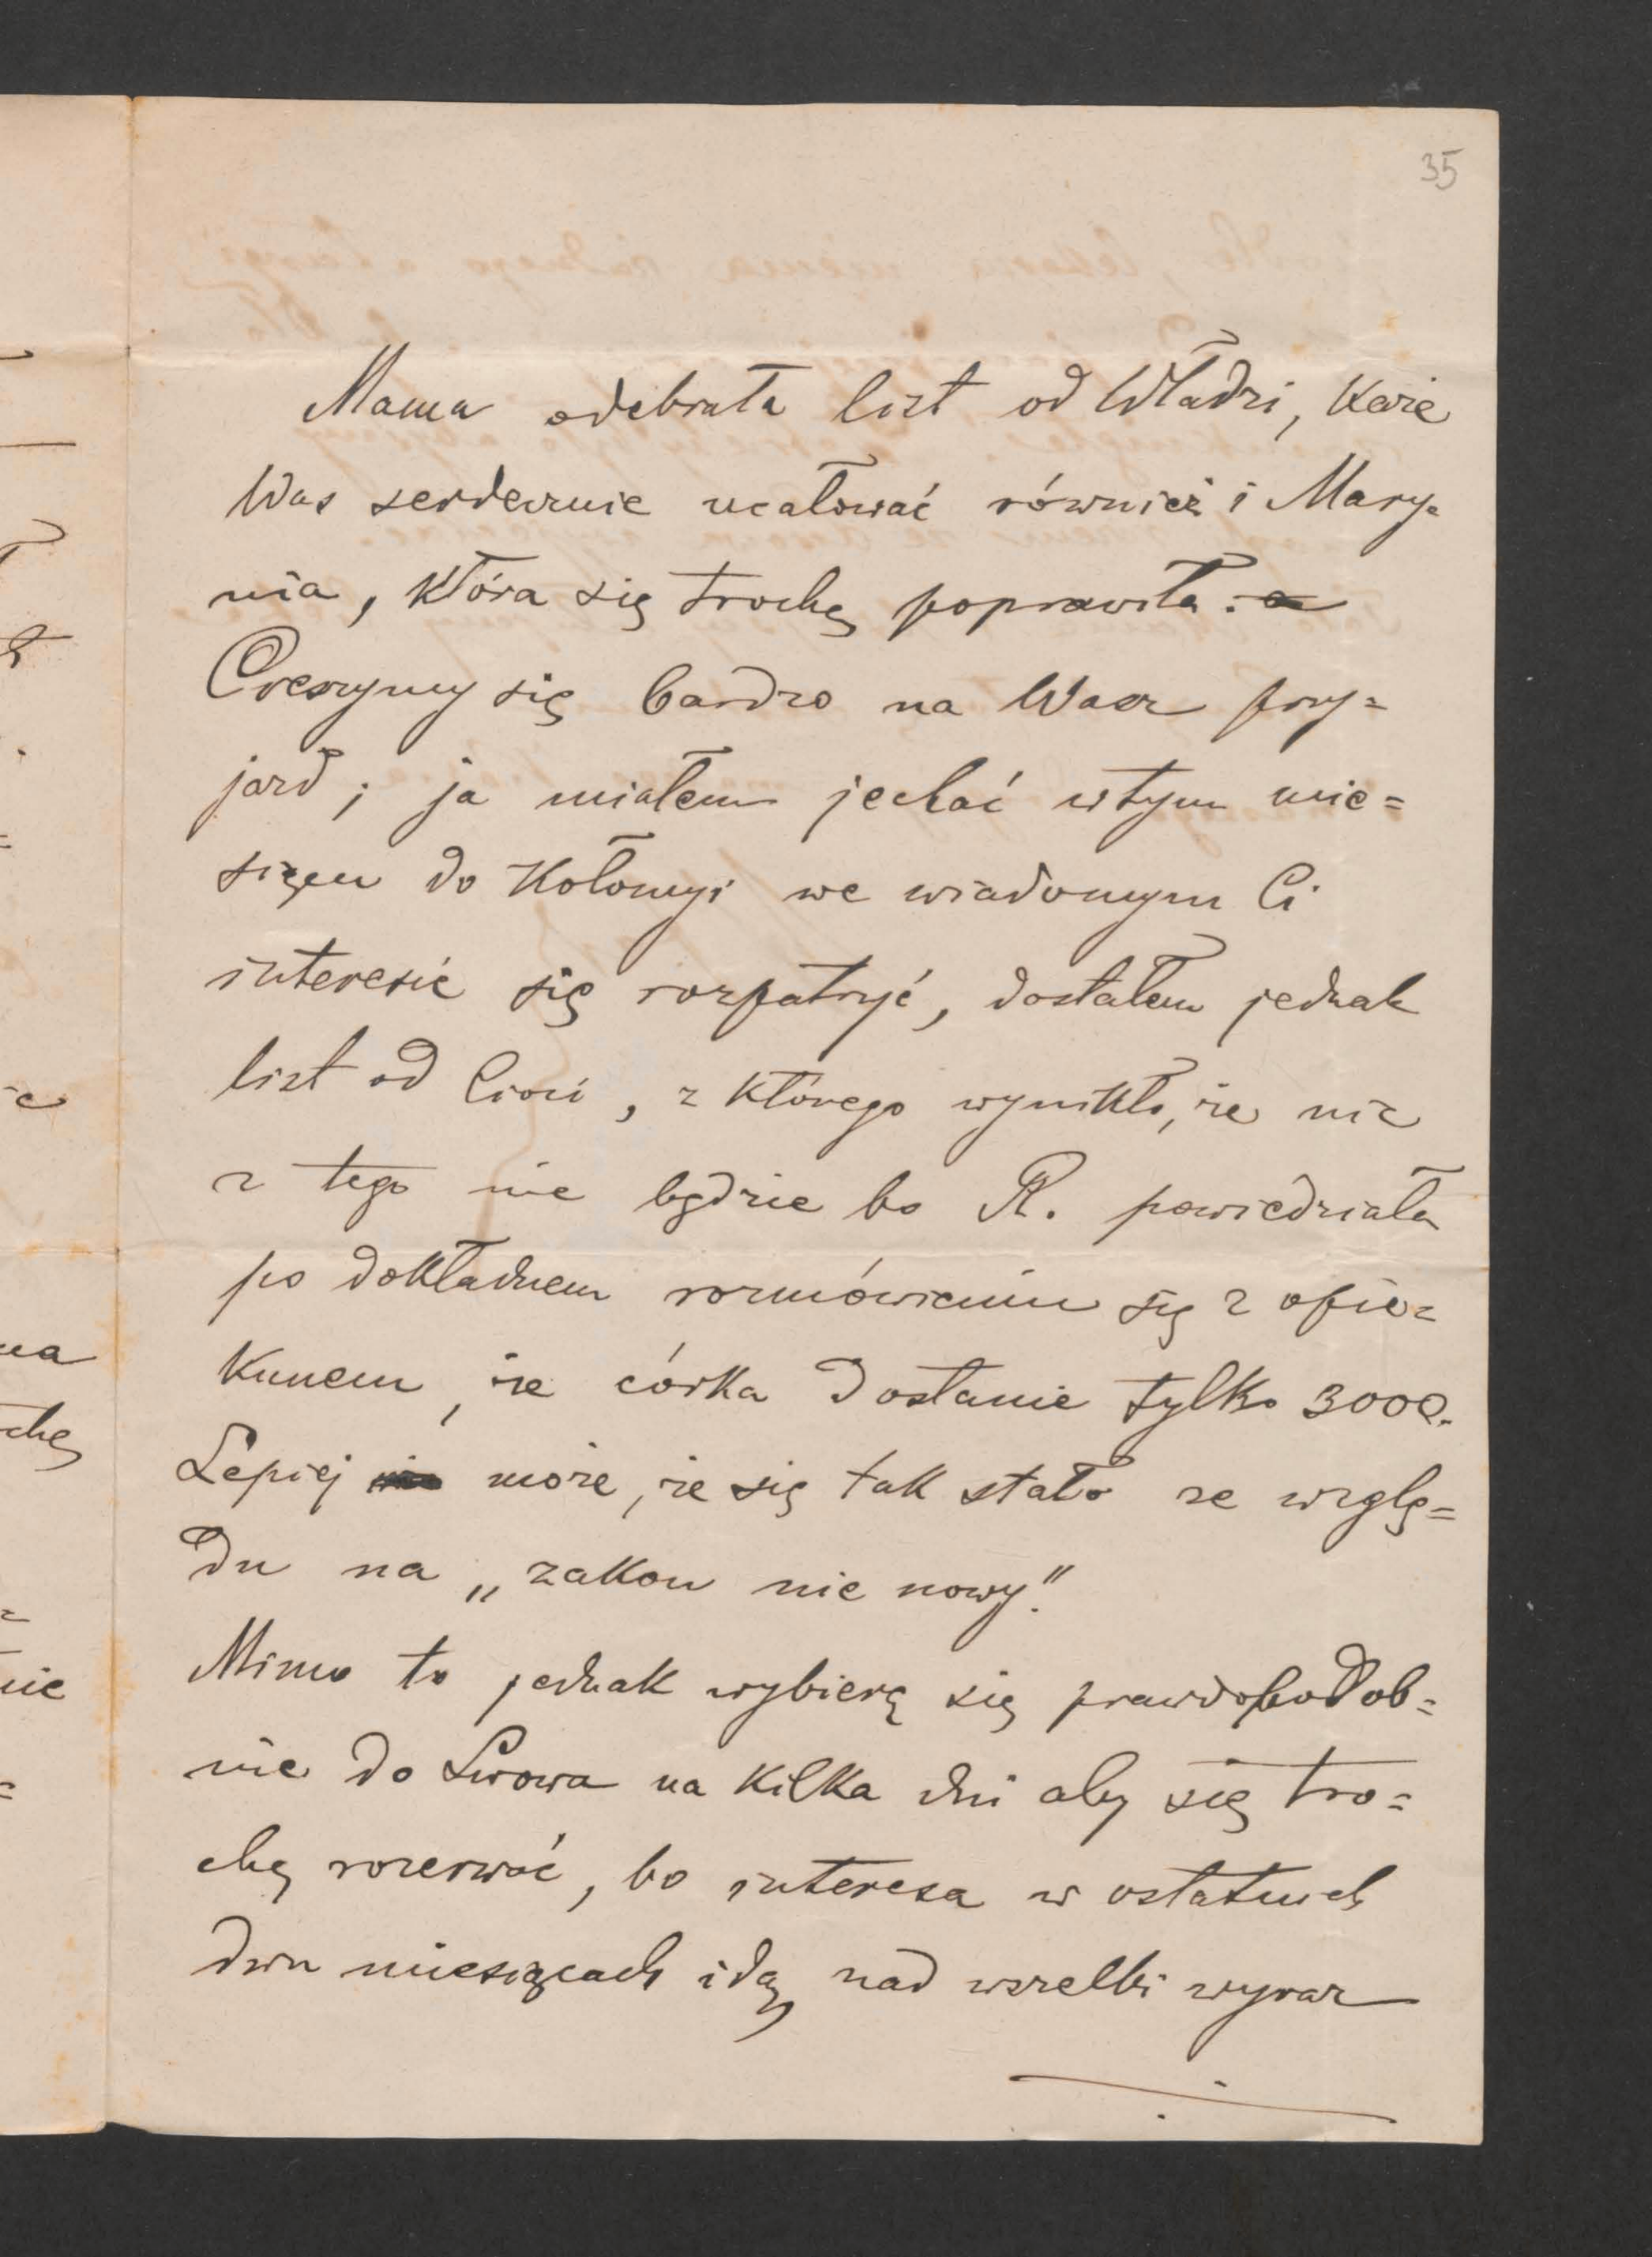 35
Mama odebrała list od Władzi, każe
Was serdecznie ucałować również i Mary=
nia, która się trochę poprawiła.
Cieszymy się bardzo na Wasz przy=
jazd; ja miałem jechać w tym mie=
siącu do Kołomyi we wiadomym Ci
interesie się rozpatrzyć, dostałem jednak
list od Cioci, z którego wynikło, że nic
z tego nie będzie bo R. powiedziała
po dokładnem rozmówieniu się z opie=
kunem, że córka dostanie tylko 3000.
Lepiej może, że się tak stało ze wzglę=
du na „zakon nie nowy".
Mimo to jednak wybiorę się prawdopodob=
nie do Lwowa na kilka dni aby się tro=
chę rozerwać, bo interesa w ostatnich
dwu miesiącach idą nad wszelki wyraz